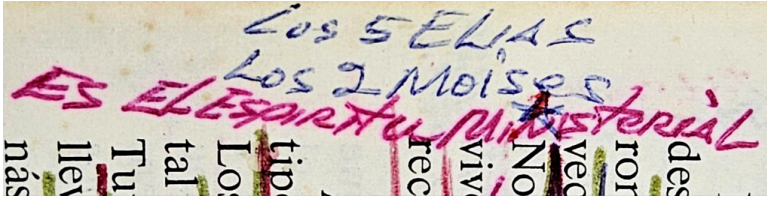 Los 5 ELIAS
Los 2 Moises
ES EL ESPIRITU MINISTERIAL
des
ron
vec
No
vivi
rec
tipo
Los
tal
Tu
llev
nás